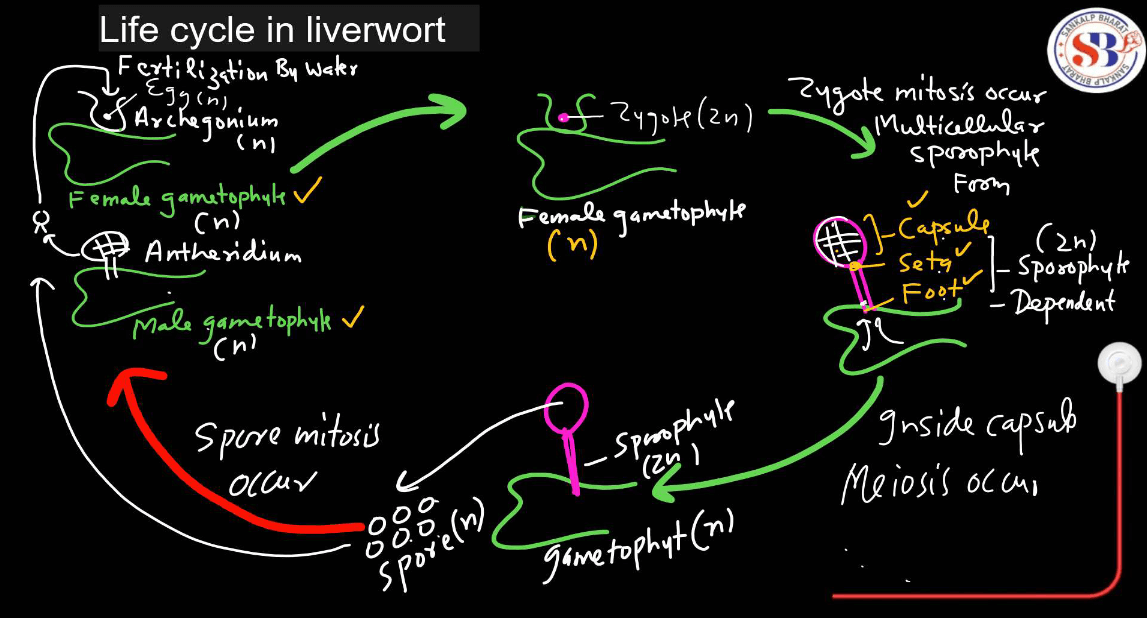 Life cycle in liverwort
SANKALP BHARAT
SB
SANKALP BHARAT
Fertilization By Water
Egg(n)
Archegonium
(n)
Female gametophyte ✓
(n)
Antheridium
Male gametophyte ✓
(n)
Zygote (2n)
Female gametophyte
(n)
Zygote mitosis occur
Multicellular
sporophyte
Form
Capsule ✓
Seta ✓
Foot ✓
(2n)
Sporophyte
Dependent
Inside capsul
Meiosis occur
Sporophyte
(2n)
gametophyt (n)
Spore (n)
Spore mitosis
occur